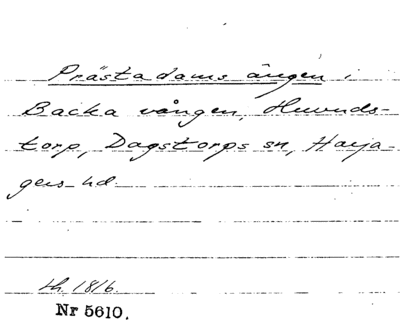 Prästadams ängen i
Backa vången, Huvuds-
torp, Dagstorps sn, Harja-
gers hd.
th. 1816.
Nr 5610.